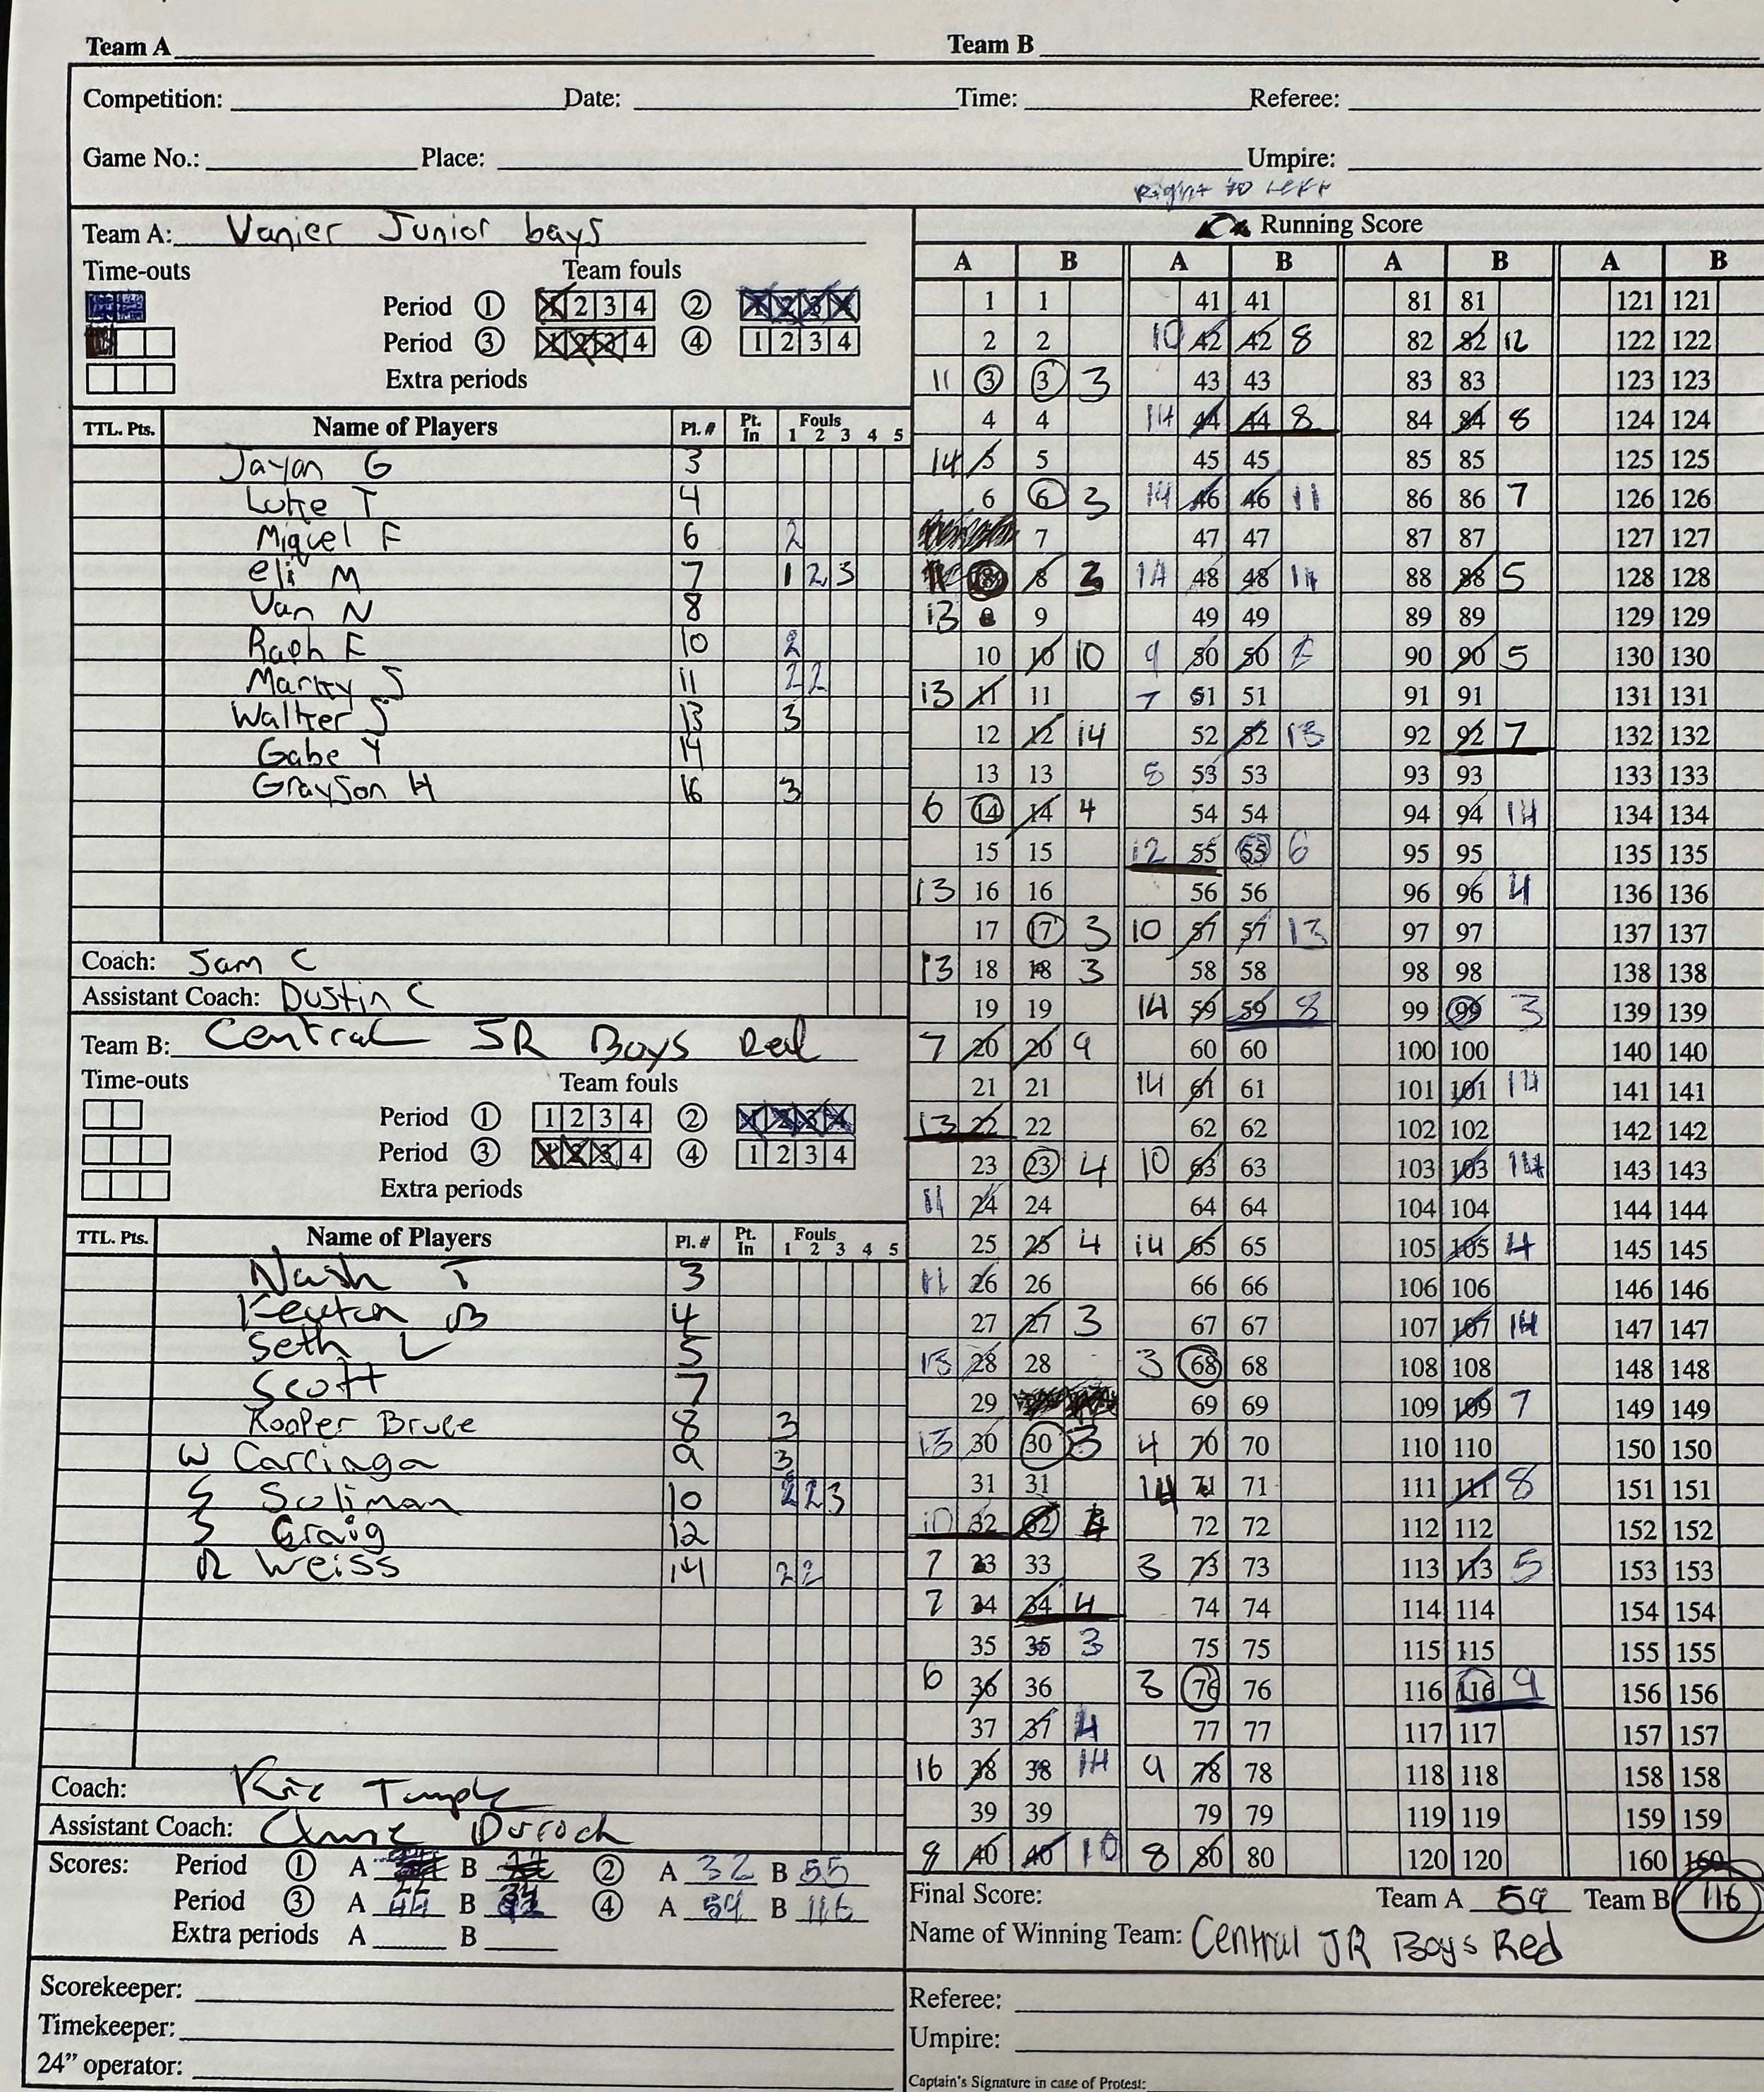 Team A Team B
Competition: Date: Time: Referee:
Game No.: Place: Umpire:
Right to Left
Team A: Vanier Junior boys
Running Score
Time-outs Team fouls
Period 1 1 2 3 4 2 1 2 3 4
Period 3 1 2 3 4 4 1 2 3 4
Extra periods
TTL. Pts. Name of Players Pl. # Pt. In Fouls 1 2 3 4 5
Jayan G 3
Luke T 4
Miguel F 6 2
eli M 7 1 2 3
Van N 8
Raph F 10 2
Marky S 11 2 2
Walker S 13 3
Gabe Y 14
Grayson H 16 3
Coach: Sam C
Assistant Coach: Dustin C
Team B: Central JR Boys Red
Time-outs Team fouls
Period 1 1 2 3 4 2 1 2 3 4
Period 3 1 2 3 4 4 1 2 3 4
Extra periods
TTL. Pts. Name of Players Pl. # Pt. In Fouls 1 2 3 4 5
Nash T 3
Keaton B 4
Seth L 5
Scott 7
Kooper Bruce 8 3
W Carringa 9 3
S Soliman 10 2 2 3
S Craig 12
R Weiss 14 2 2
Coach:
Assistant Coach:
Scores: Period 1 A B 2 A 32 B 55
Period 3 A 44 B 92 4 A 59 B 116
Extra periods A B
Scorekeeper:
Timekeeper:
24” operator:
A B A B A B A B
1 1 41 41 81 81 121 121
2 2 10 42 42 8 82 82 12 122 122
11 3 3 3 43 43 83 83 123 123
4 4 14 44 44 8 84 84 8 124 124
14 5 5 45 45 85 85 125 125
6 6 3 14 46 46 11 86 86 7 126 126
7 47 47 87 87 127 127
8 3 14 48 48 11 88 88 5 128 128
13 9 49 49 89 89 129 129
10 10 10 9 50 50 90 90 5 130 130
13 11 11 7 51 51 91 91 131 131
12 12 14 52 52 13 92 92 7 132 132
13 13 53 53 93 93 133 133
6 14 14 4 54 54 94 94 14 134 134
15 15 12 55 55 6 95 95 135 135
13 16 16 56 56 96 96 4 136 136
17 17 3 10 57 57 13 97 97 137 137
13 18 18 3 58 58 98 98 138 138
19 19 14 59 59 8 99 99 3 139 139
7 20 20 9 60 60 100 100 140 140
21 21 14 61 61 101 101 14 141 141
13 22 22 62 62 102 102 142 142
23 23 4 10 63 63 103 103 14 143 143
11 24 24 64 64 104 104 144 144
25 25 4 14 65 65 105 105 4 145 145
11 26 26 66 66 106 106 146 146
27 27 3 67 67 107 107 14 147 147
13 28 28 3 68 68 108 108 148 148
29 69 69 109 109 7 149 149
13 30 30 3 4 70 70 110 110 150 150
31 31 14 71 71 111 111 8 151 151
10 32 32 4 72 72 112 112 152 152
7 33 33 3 73 73 113 113 5 153 153
7 34 34 4 74 74 114 114 154 154
35 35 3 75 75 115 115 155 155
6 36 36 3 76 76 116 116 9 156 156
37 37 4 77 77 117 117 157 157
16 38 38 14 9 78 78 118 118 158 158
39 39 79 79 119 119 159 159
8 40 40 10 8 80 80 120 120 160 160
Final Score: Team A 59 Team B 116
Name of Winning Team: Central JR Boys Red
Referee:
Umpire:
Captain's Signature in case of Protest: